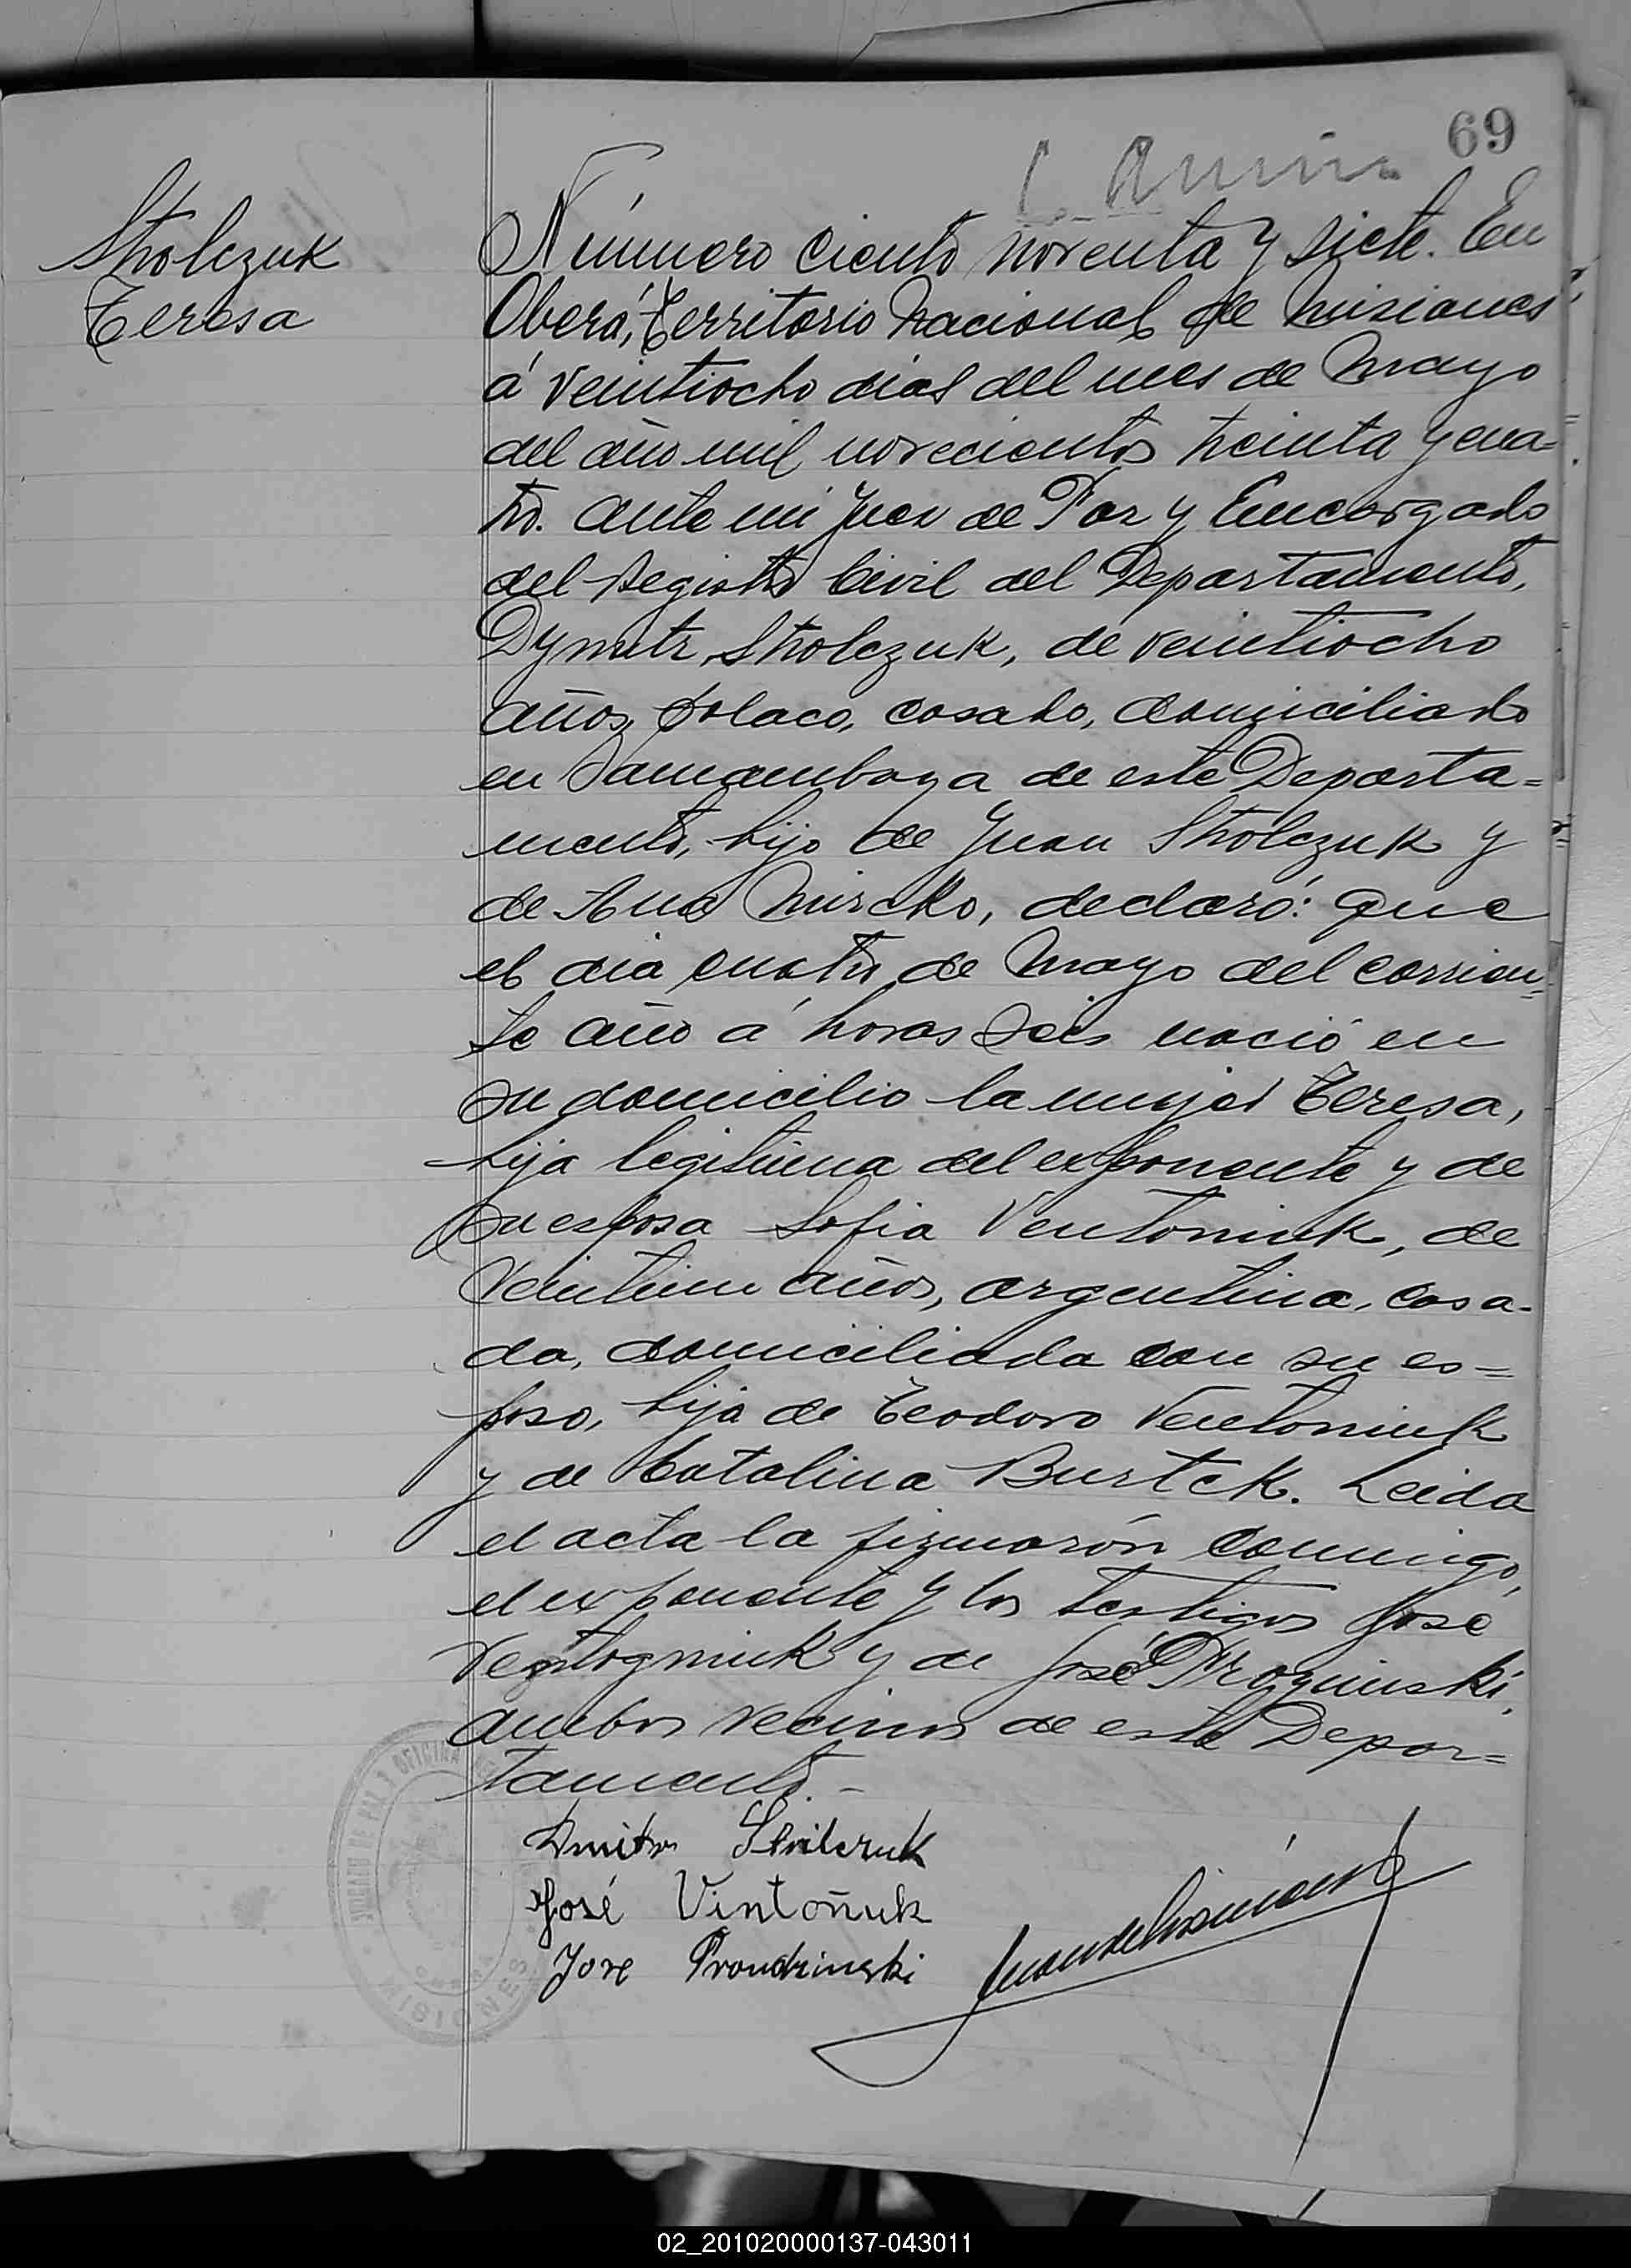 69
C. Amin
Strolczuk
Teresa
Número ciento noventa y siete. En
Oberá, Territorio Nacional de Misiones
á veintiocho dias del mes de Mayo
del año mil novecientos treinta y cua-
tro. ante mi Juez de Paz y Encargado
del Registro Civil del Departamento,
Dymitr Strolczuk, de veintiocho
años, polaco, casado, domiciliado
en Samambaya de este Departa=
mento, hijo de Juan Strolczuk y
de Ana Mircko, declaró: Que
el dia cuatro de Mayo del corrien=
te año á horas seis nació en
su domicilio la mujer Teresa,
hija legitima del exponente y de
su esposa Sofia Ventoniuk, de
veintiun años, argentina, casa-
da, domiciliada con su es=
poso, hija de Teodoro Ventoniuk
y de Catalina Burtek. Leida
el acta la firmarón conmigo,
el exponente y los testigos José
Ventogniuk y de José Progniuski,
ambos vecinos de este Depar=
tamento.-
Dmitr Strilczuk
José Vintoñuk
Jose Prondzinski
JUZGADO DE PAZ Y OFICINA
MISIONES
02_201020000137-043011